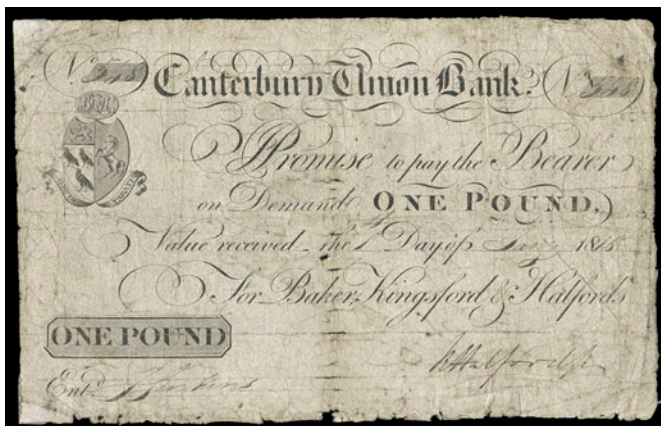 No. Canterbury Union Bank. No.
I Promise to pay the Bearer
on Demand ONE POUND,
Value received the 1 Day of 1818
For Baker, Kingsford & Halfords
ONE POUND
Entd. Halford